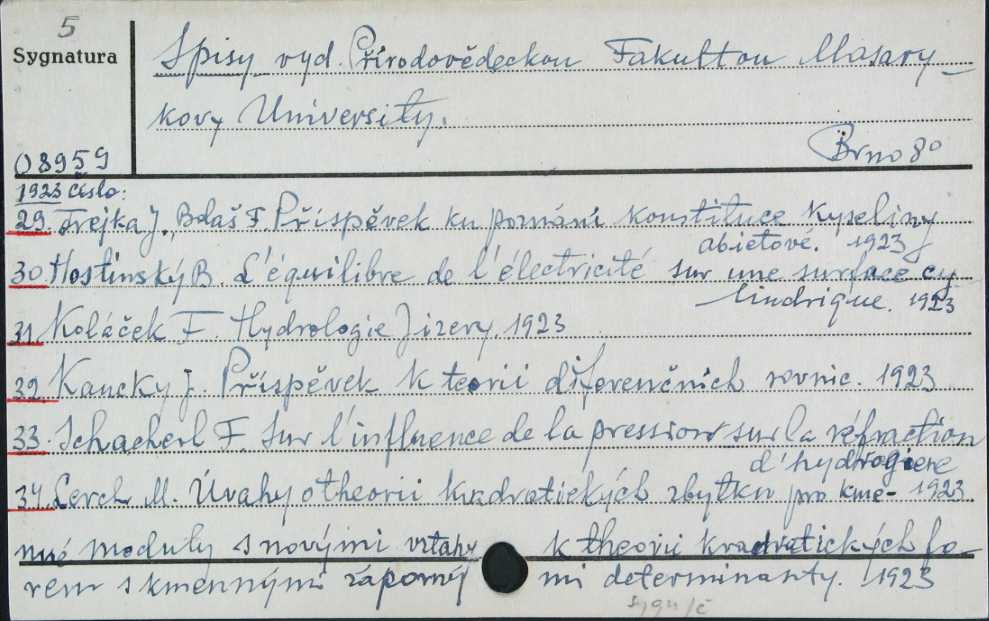 5
Sygnatura
08959
Spisy vyd. Přírodovědeckou Fakultou Masary-
kovy University.
Brno 8°
1923 číslo:
29. Frejka J., Balaš F Příspěvek ku poznání konstituce kyseliny
abietové. 1923
30. Hostinský B. L'équilibre de l'électricité sur une surface cy-
lindrique. 1923
31. Koláček F. Hydrologie Jizery. 1923
32. Kaucky J. Příspěvek k teorii diferenčních rovnic. 1923
33. Schacherl F. Sur l'influence de la pression sur la réfraction
d'hydrogiene
34. Lerch M. Úvahy o theorii kvadratických zbytku pro kme- 1923
nné moduly s novými vztahy k theorii kvadratických fo-
rem s kmennými záporný mi determinanty. 1923
sygn/č